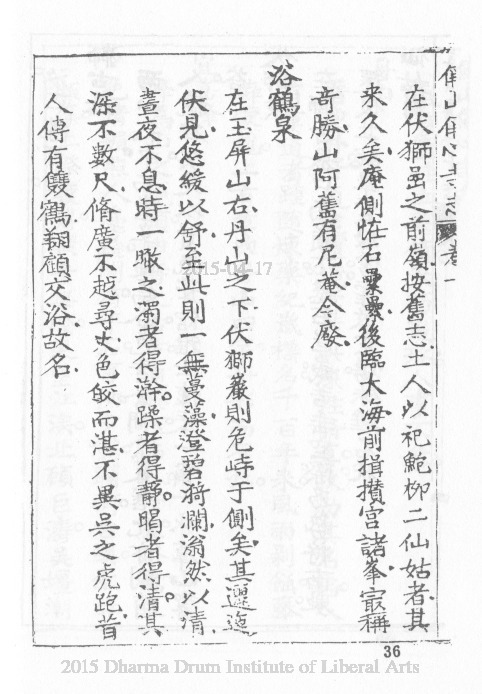 在伏獅嵒之前嶺按舊志土人以祀鮑栁二仙姑者其
来久矣庵側恠石纍纍後臨大海前揖攅宫諸峯㝡稱
奇勝山阿舊有尼菴今廢
浴鶴泉
在玉屏山右丹山之下伏獅巖則危峙于側矣其邐迤
伏見悠緩以舒至此則一無蔓藻澄碧漪瀾滃然以清
晝夜不息時一瞰之濁者得澣躁者得靜暍者得清其
深不數尺脩廣不越尋丈色皎而湛不異呉之虎跑昔
人傳有雙鶴翔顧交浴故名
36
2015-04-17
2015 Dharma Drum Institute of Liberal Arts